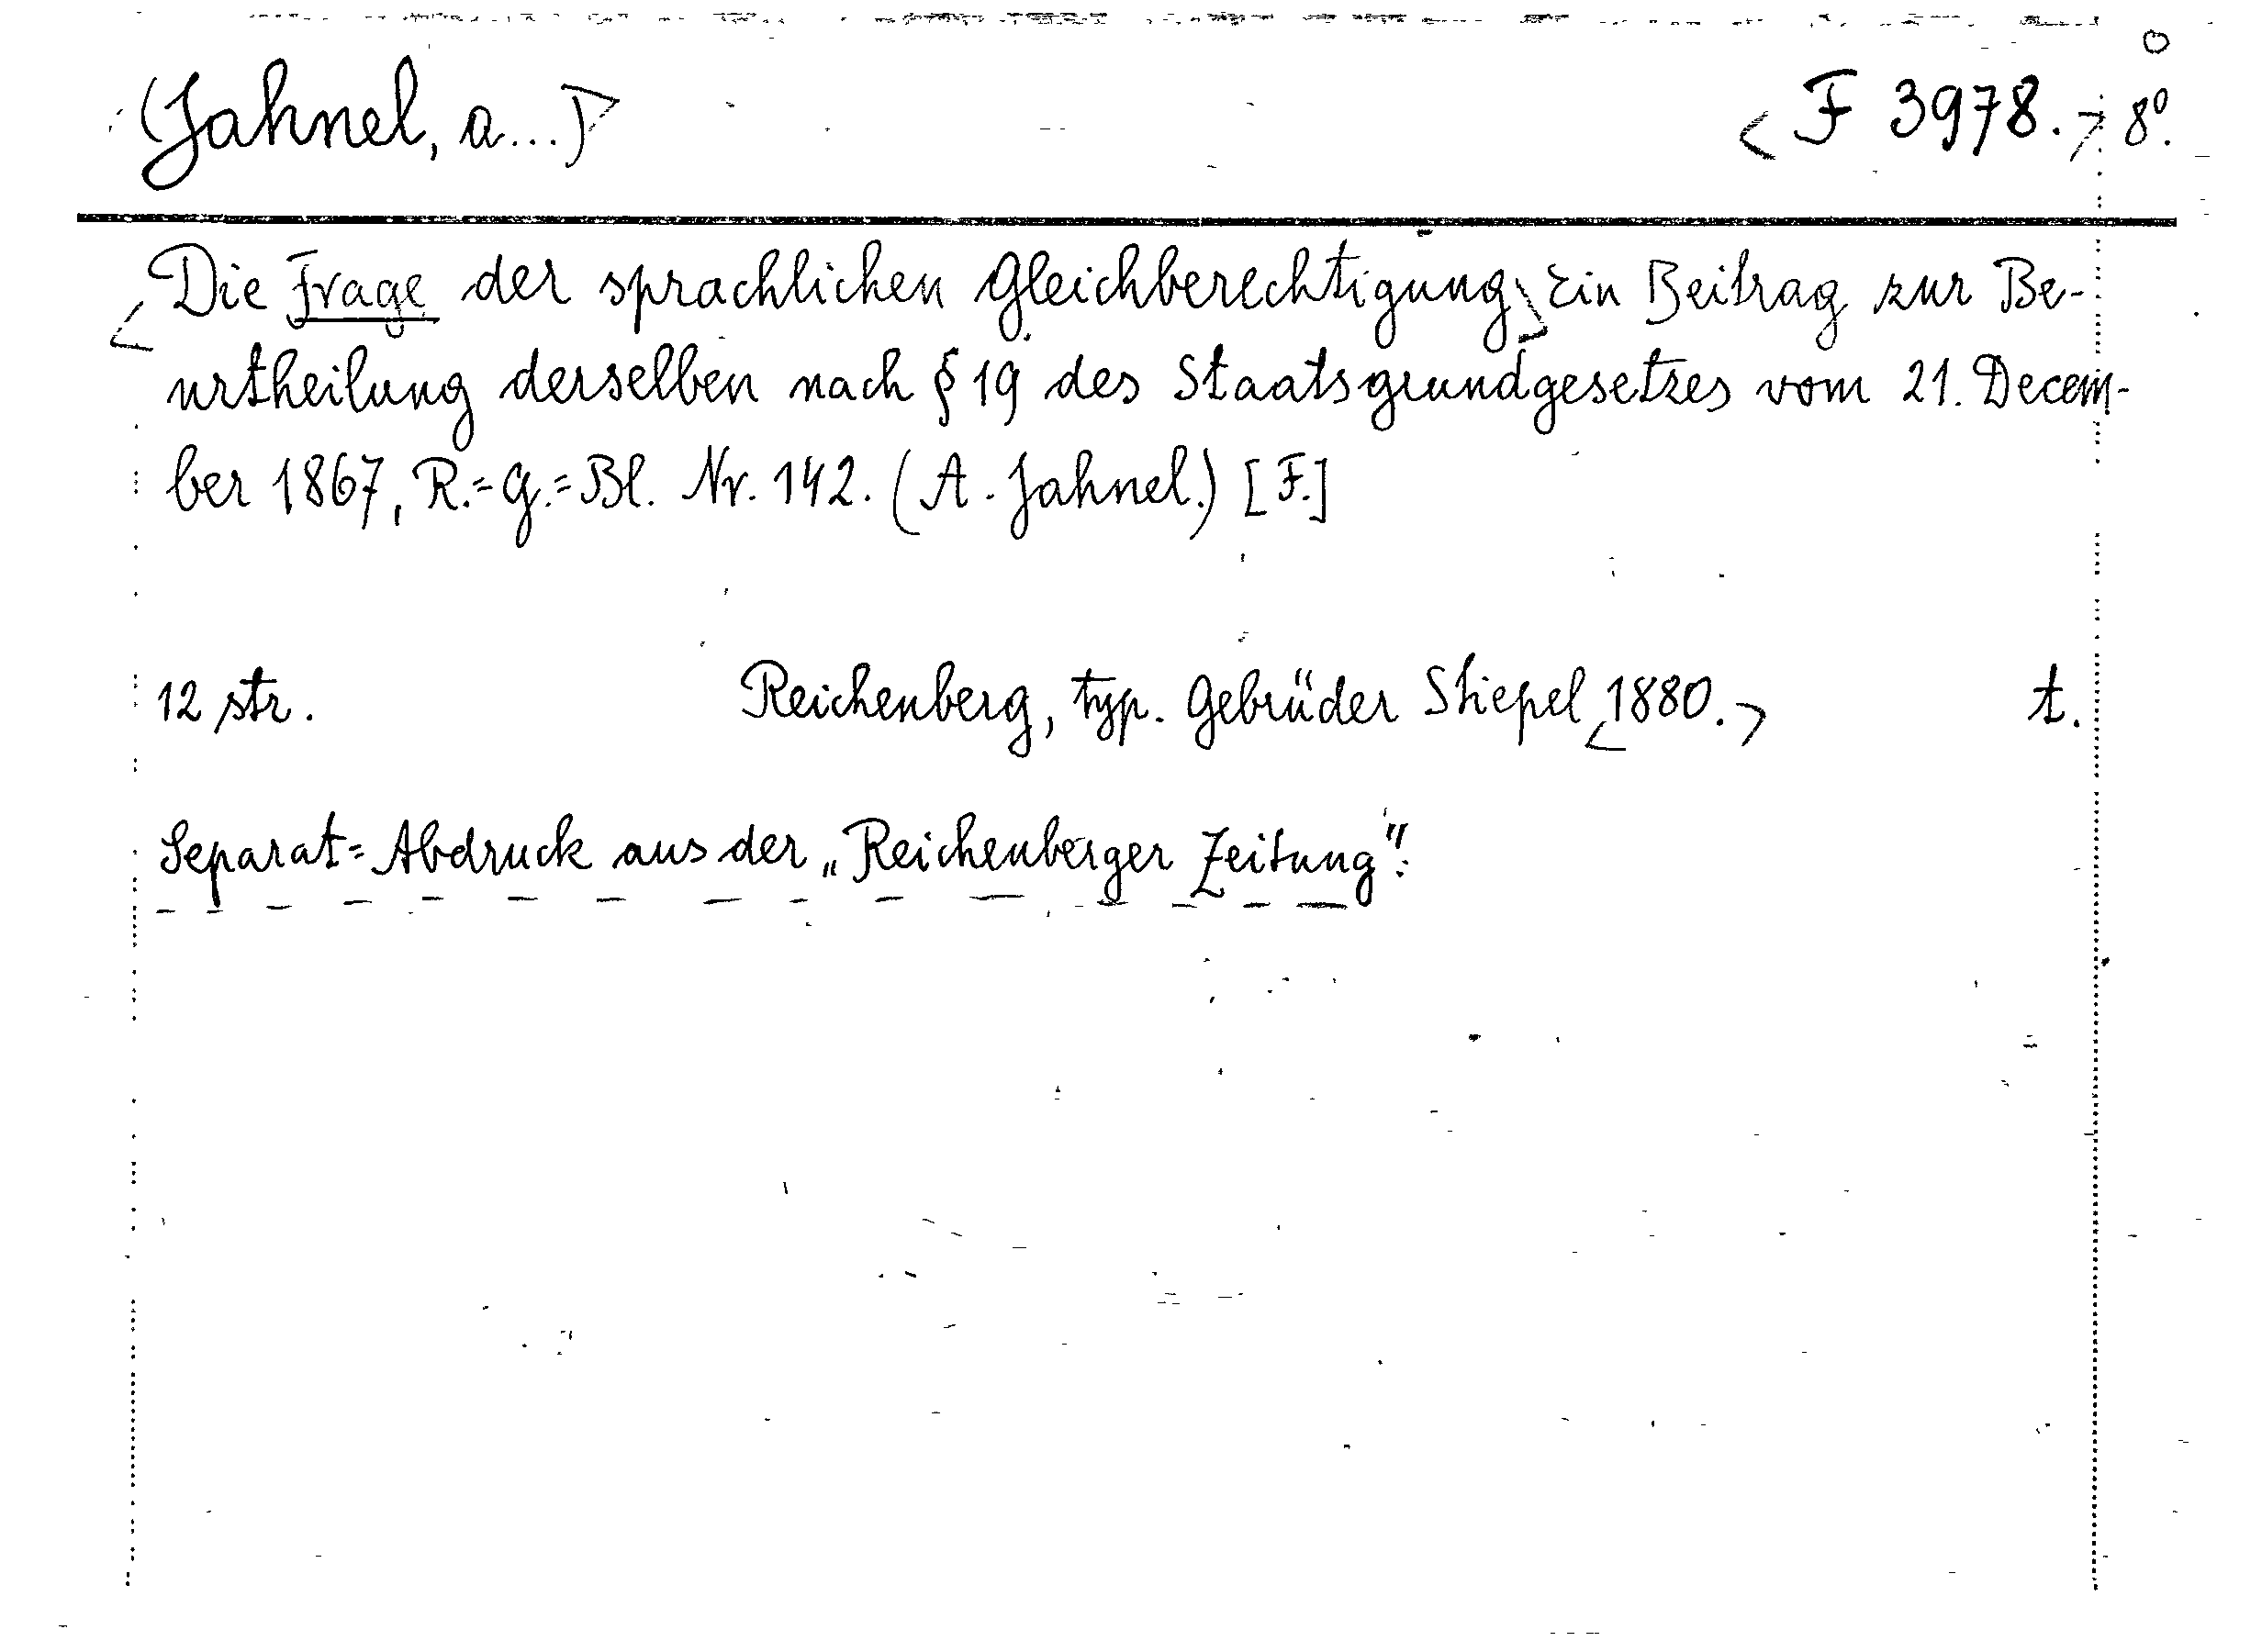 (Jahnel, A...)> <F 3978.> 8°.
<Die Frage der sprachlichen Gleichberechtigung> Ein Beitrag zur Be-
urtheilung derselben nach § 19 des Staatsgrundgesetzes vom 21. Decem-
ber 1867, R.=G.=Bl. Nr. 142. (A. Jahnel.) [F.]
12 str. Reichenberg, typ. Gebrüder Stiepel <1880.> t.
Separat=Abdruck aus der „Reichenberger Zeitung".